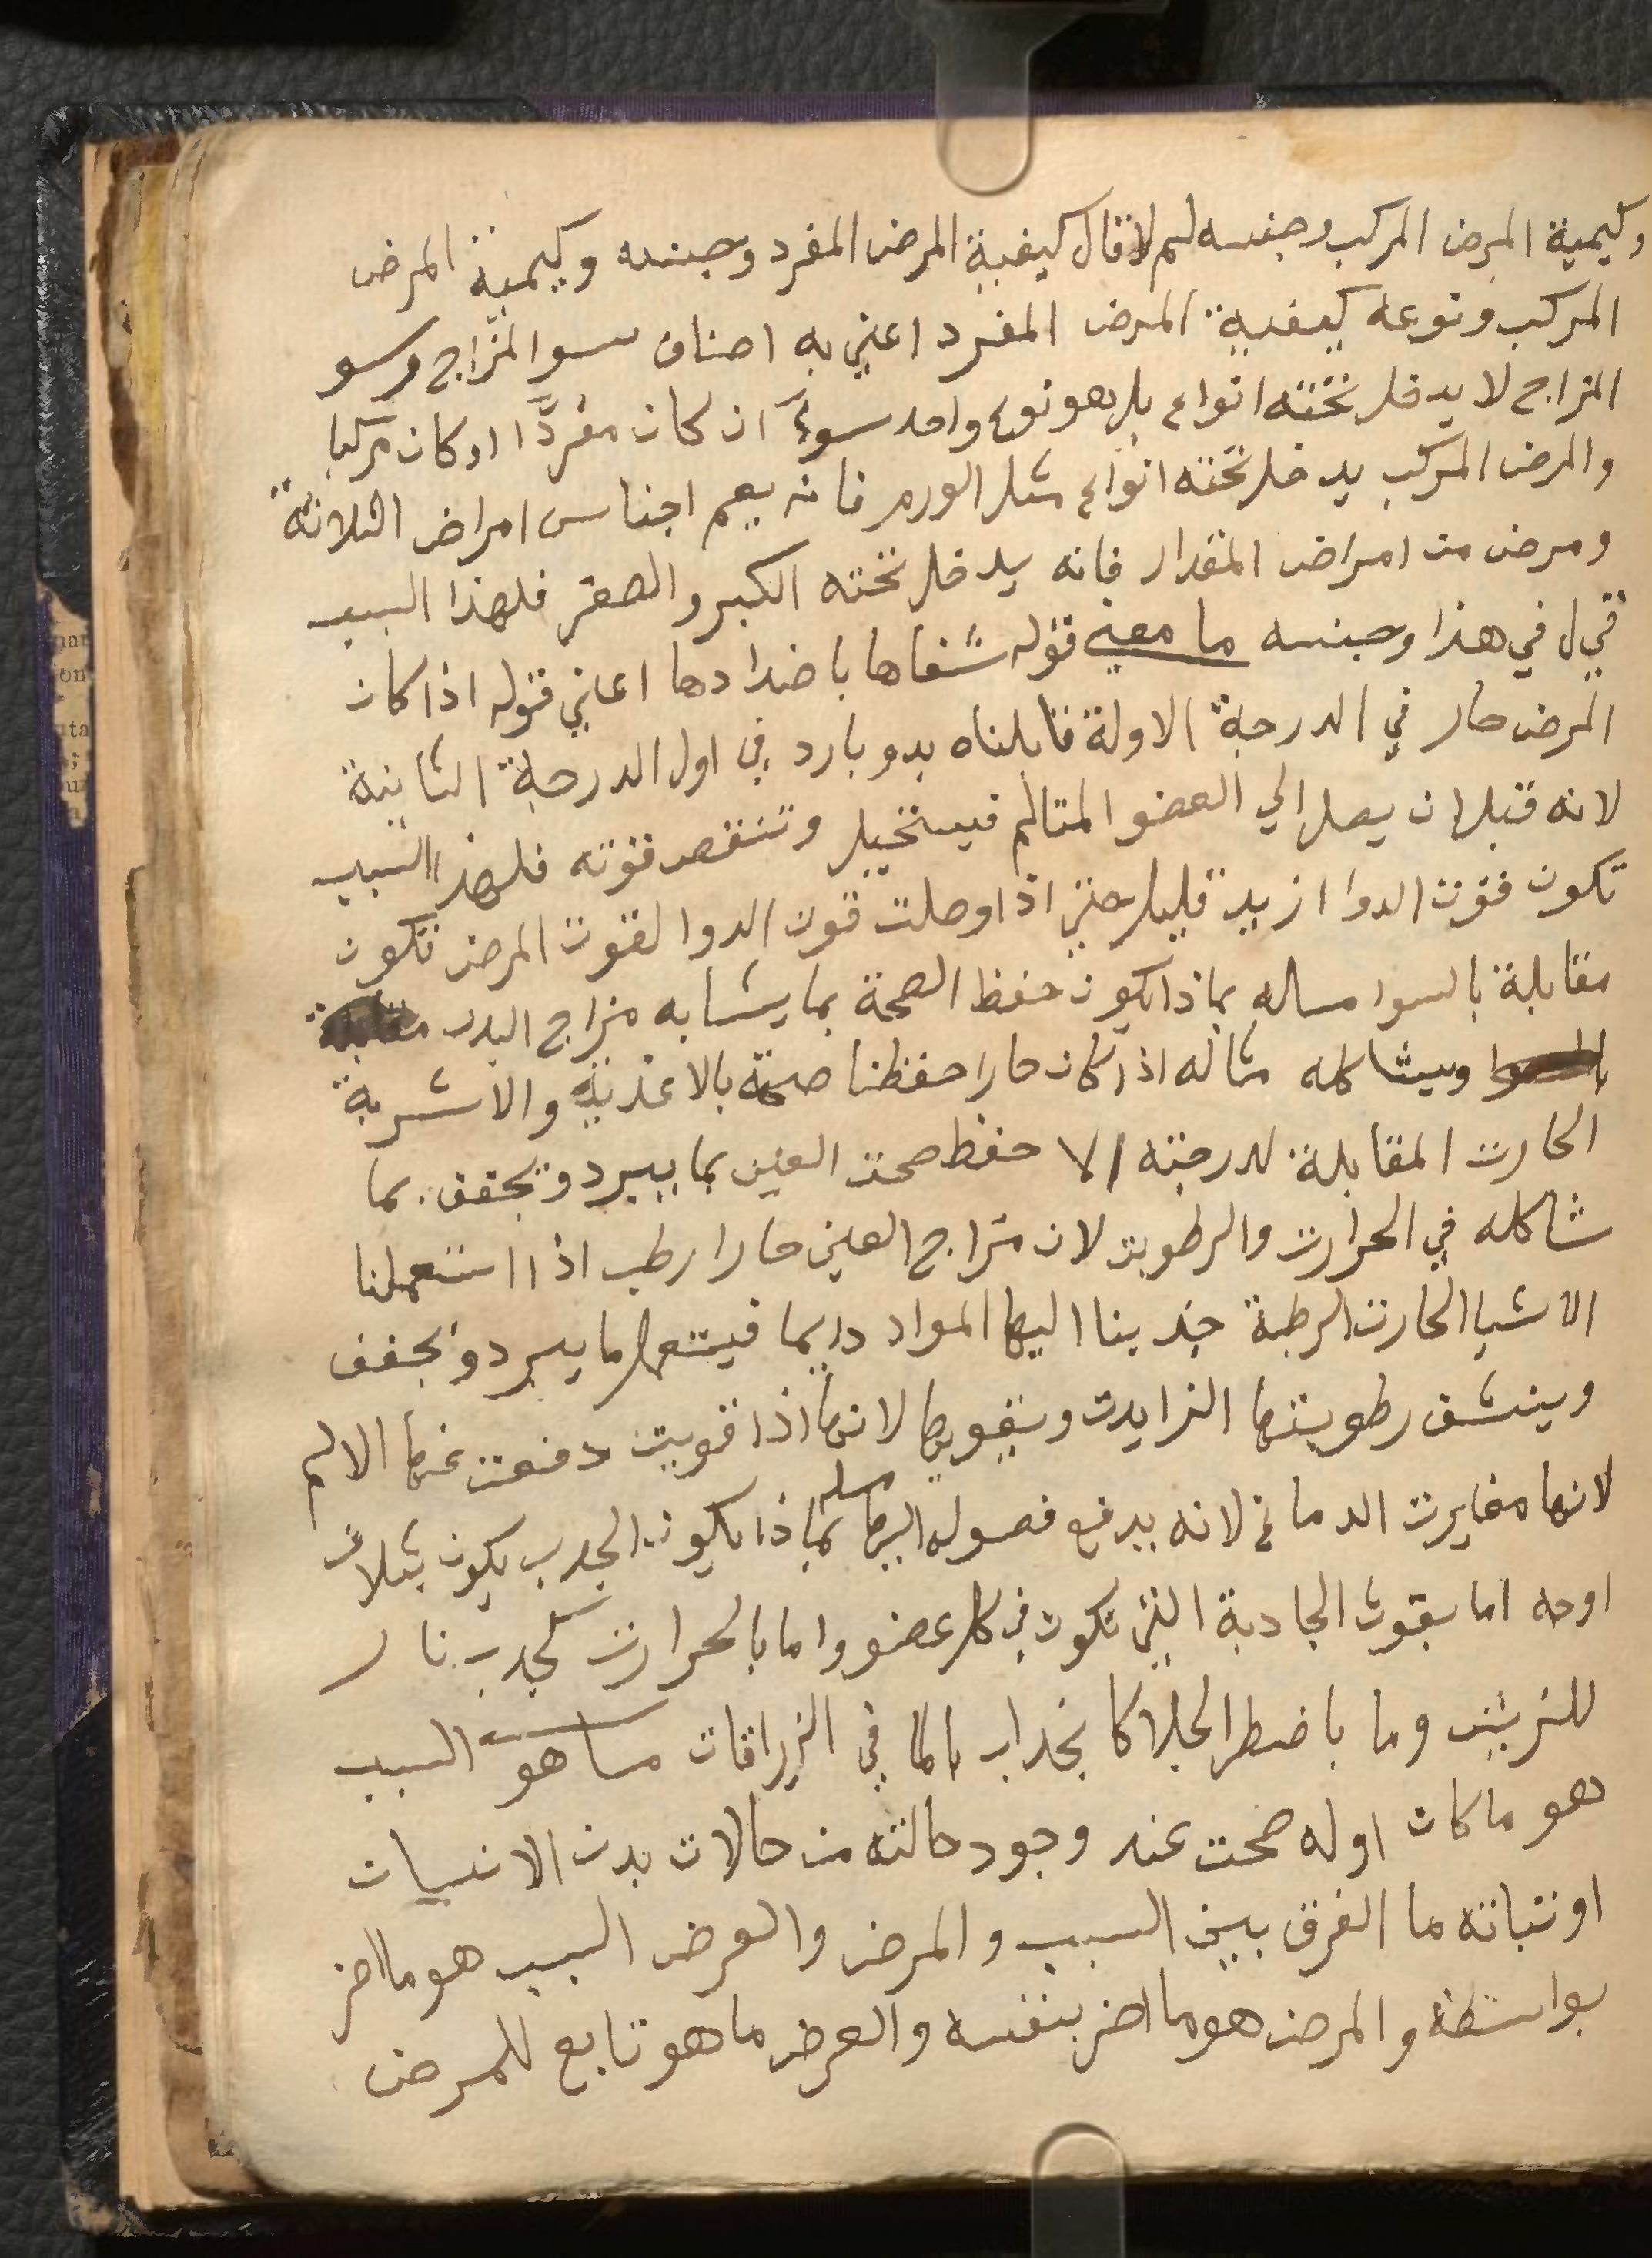 وكيمية المرض المركب وجنسه لم لا قال كيفية المرض المفرد وجنسه وكيمية المرض
المركب ونوعه كيفية المرض المفرد اعني به اصناف سو المزاج وسو
المزاج لا يدخل تحته انواع بل هو نوع واحد سوءً ان كان مفردًا او كان مركبا
والمرض المركب يدخل تحته انواع مثل الورم فانه يعم اجناس امراض الثلاثة
ومرض من امراض المقدار فانه يدخل تحته الكبر والصغر فلهذا السبب
قيل في هذا وجنسه ما معني قوله شفاها باضدادها اعني قوله اذا كان
المرض حار في الدرجة الاولة قابلناه بدو بارد في اول الدرجة الثانية
لانه قبل ان يصل الي العضو المتالم فيستحيل وتنقص قوته فلهذا السبب
تكون قوت الدوا ازيد قليل حتي اذا وصلت قوت الدوا لقوت المرض تكون
مقابلة بالسوا مساله بماذا يكون حفظ الصحة بما يشابه مزاج البدن مقابلة
بالسوا ويشاكله مثاله اذا كان حارا حفظنا صحته بالاغذية والاشربة
الحارت المقابلة لدرجته الا حفظ صحت العين بما يبرد ويجفف بما
شاكله في الحرارت والرطوبت لان مزاج العين حارا رطب اذا استعملنا
الاشيا الحارت الرطبة جذبنا اليها المواد دايما فيستعمل ما يبرد ويجفف
وينشف رطوبتها الزايدت ويقويها لانها اذا قويت دفعت عنها الالم
لانها مغايرت الدماغ لانه يدفع فصوله اليها مسله بماذا يكون الجدب يكون بثلاث
اوجه اما بقوت الجادبة التي تكون في كل عضو واما بالحرارت كجدب نار
للزيت وما باضطر الخلا كانجداب الما في الزراقات ما هو السبب
هو ما كان اوله صحت عند وجود حالته من حالات بدن الانسان
او نباته ما الفرق بين السبب والمرض والعرض السبب هو ما اضر
بواسطة والمرض هو ما اضر بنفسه والعرض ما هو تابع للمرض